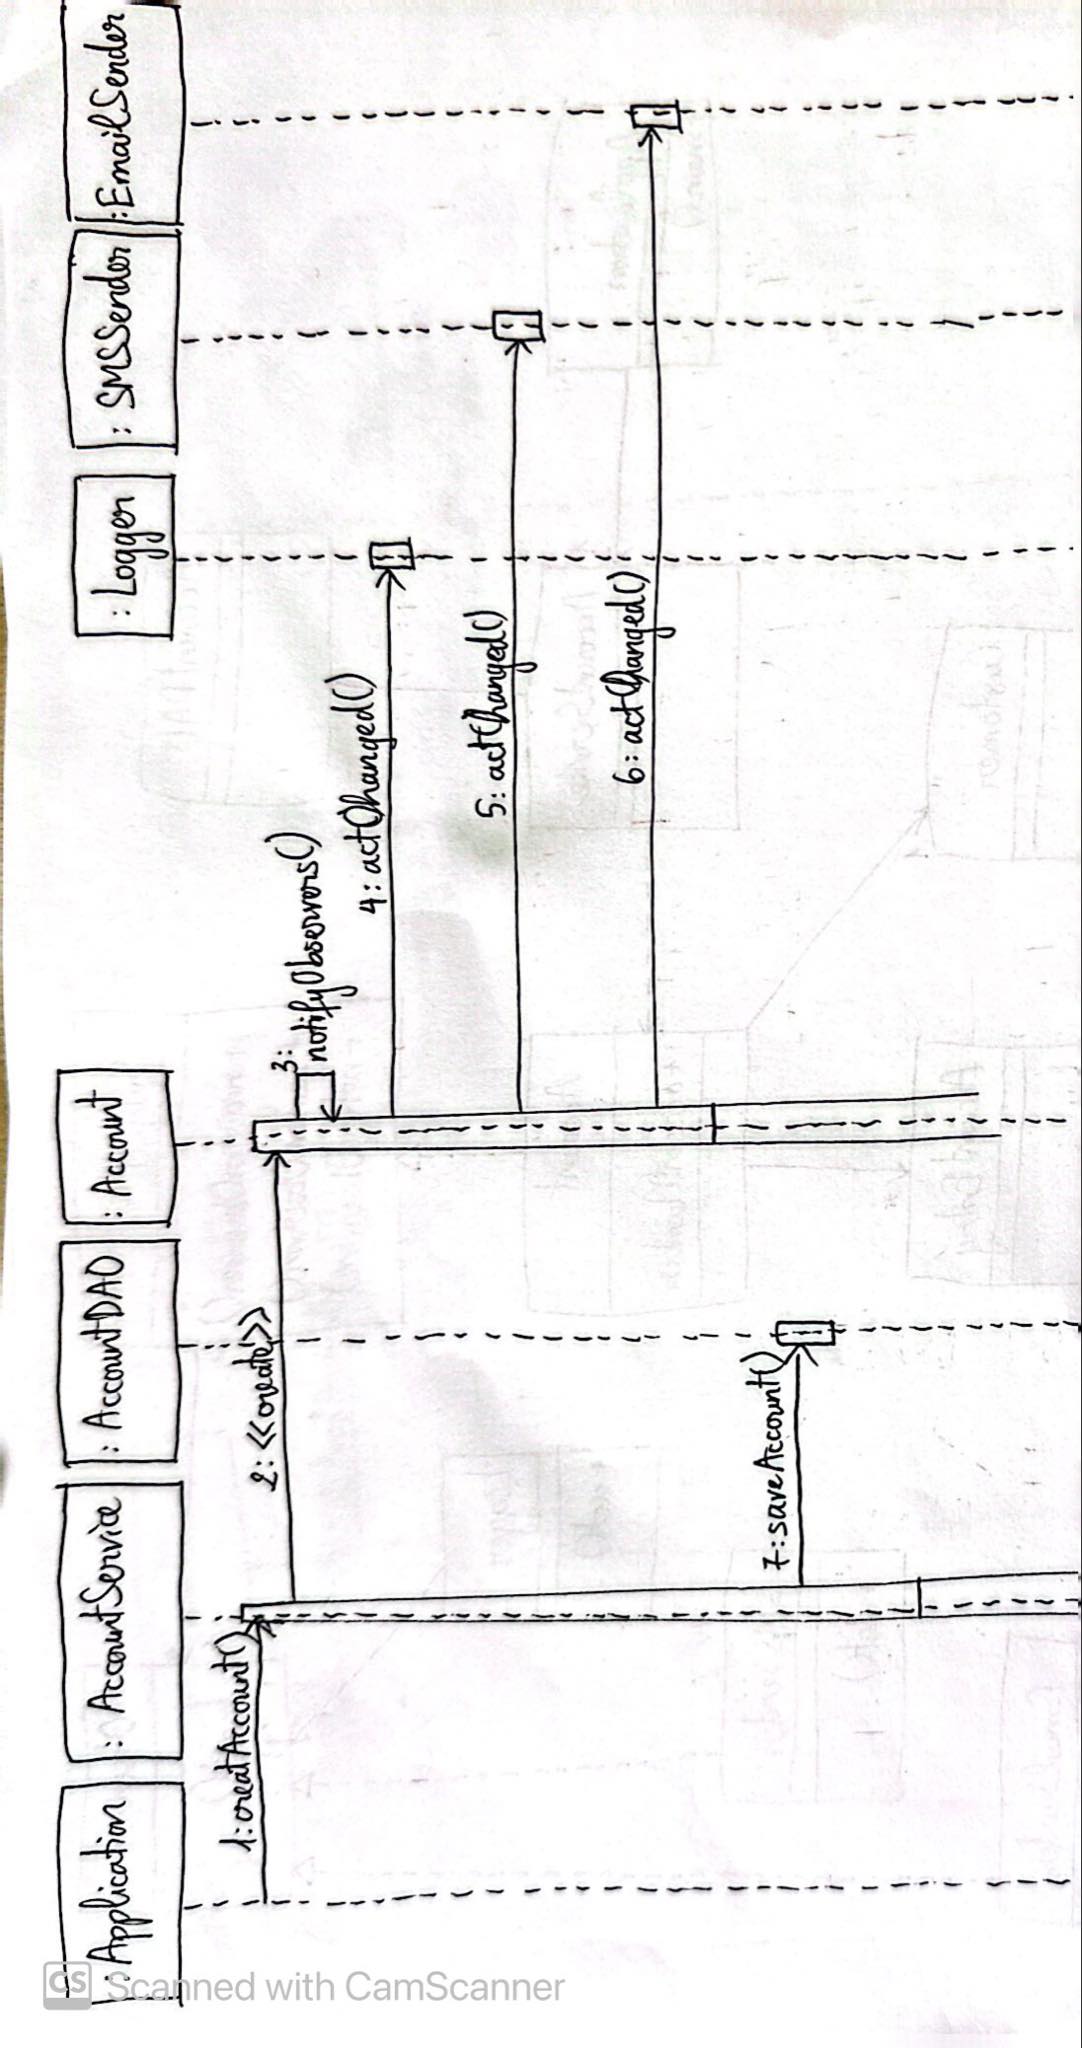 :Application
: AccountService
: AccountDAO
: Account
: Logger
: SMSSender
:EmailSender
1:creatAccount()
2: <<create>>
3:
notifyObservers()
4: actChanged()
5: actChanged()
6: actChanged()
7:saveAccount()
CS Scanned with CamScanner